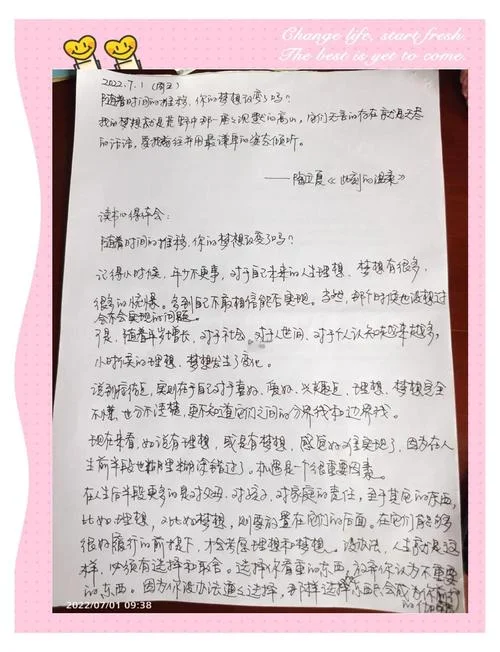 Change life, start fresh.
The best is yet to come.
2022.7.1(周五)
随着时间的推移,你的梦想改变了吗?
我的梦想就是荒野中那一座座沉默的高山,它们无言的存在就是无尽
的诉语,要我前往并用最谦卑的姿态倾听。
——陶立夏《此刻的温柔》
读书心得体会:
随着时间的推移,你的梦想改变了吗?
记得小时候,年少不更事,对于自己未来的人生理想、梦想有很多,
很多的憧憬。多到自己不敢相信能否实现。当然,那个时候也没想过
会不会实现的问题。
只是,随着年岁增长,对于社会、对于人世间、对于个人认知越来越多,
小时候的理想、梦想发生了变化。
说到底,实则在于自己对于喜好、爱好、兴趣点、理想、梦想完全
不懂,也分不清楚,更不知道它们之间的分界线和边界线。
现在来看,如说有理想,或是有梦想,感觉好难实现了,因为在人
生前半段也糊里糊涂错过了。机遇是个很重要因素。
在人生后半段更多的是对父母、对孩子、对家庭的责任,至于其它的东西,
比如理想,又比如梦想,则要放置在它们的后面。在它们能够
很好履行的前提下,才会考虑理想和梦想。没办法,人生就是这
样,必须有选择和取舍。选择你看重的东西,放弃你认为不重要
的东西。因为你没办法通通选择,那样选择东西会成为你前行
2022/07/01 09:38